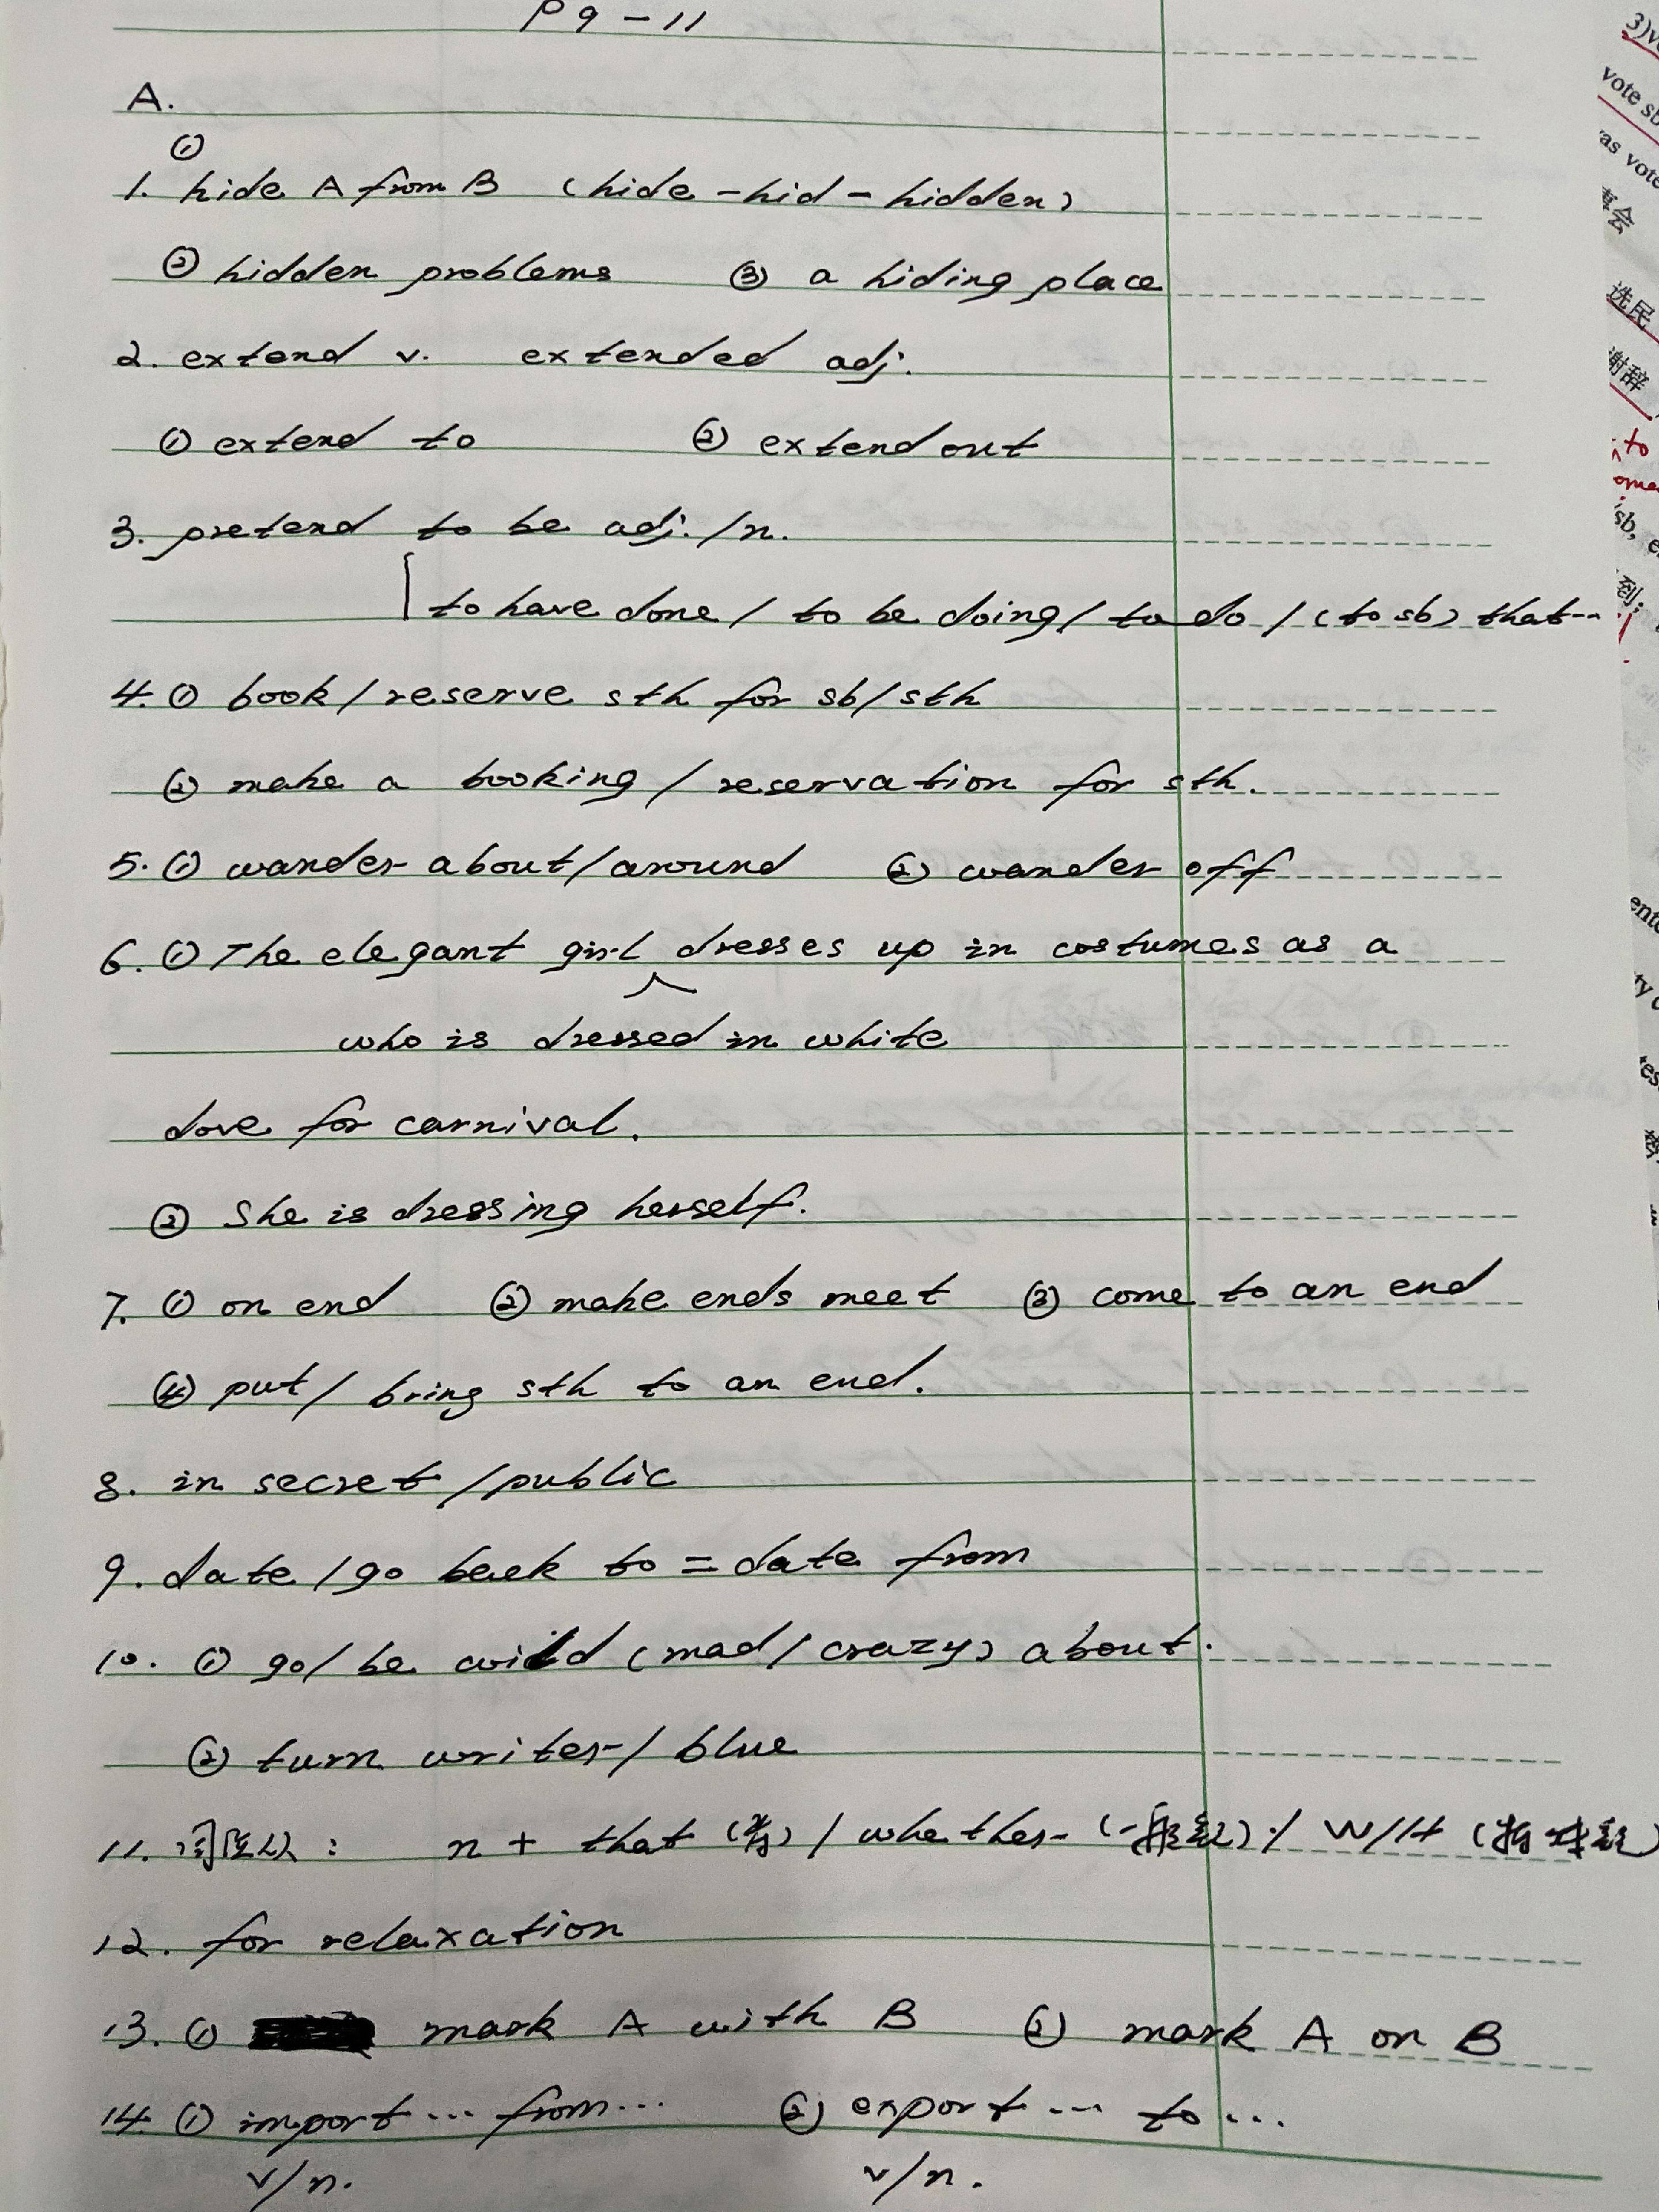 P9-11
A.
①
1. hide A from B (hide-hid-hidden)
② hidden problems ③ a hiding place
2. extend v. extended adj.
① extend to ② extend out
3. pretend to be adj./n.
to have done / to be doing / to do / (to sb) that...
4. ① book/reserve sth for sb/sth
② make a booking / reservation for sth.
5. ① wander about/around ② wander off
6. ① The elegant girl dresses up in costumes as a
who is dressed in white
dove for carnival.
② She is dressing herself.
7. ① on end ② make ends meet ③ come to an end
④ put / bring sth to an end.
8. in secret / public
9. date / go back to = date from
10. ① go / be wild (mad / crazy) about.
② turn writer / blue
11. 同位从: n + that / whether (一般疑) / W/H (特殊疑)
12. for relaxation
13. ① mark A with B ② mark A on B
14. ① import ... from ... ② export ... to ...
v/n. v/n.
3)
vote sb
as vote
会
选民
谢辞
to
ome
sb,
到: